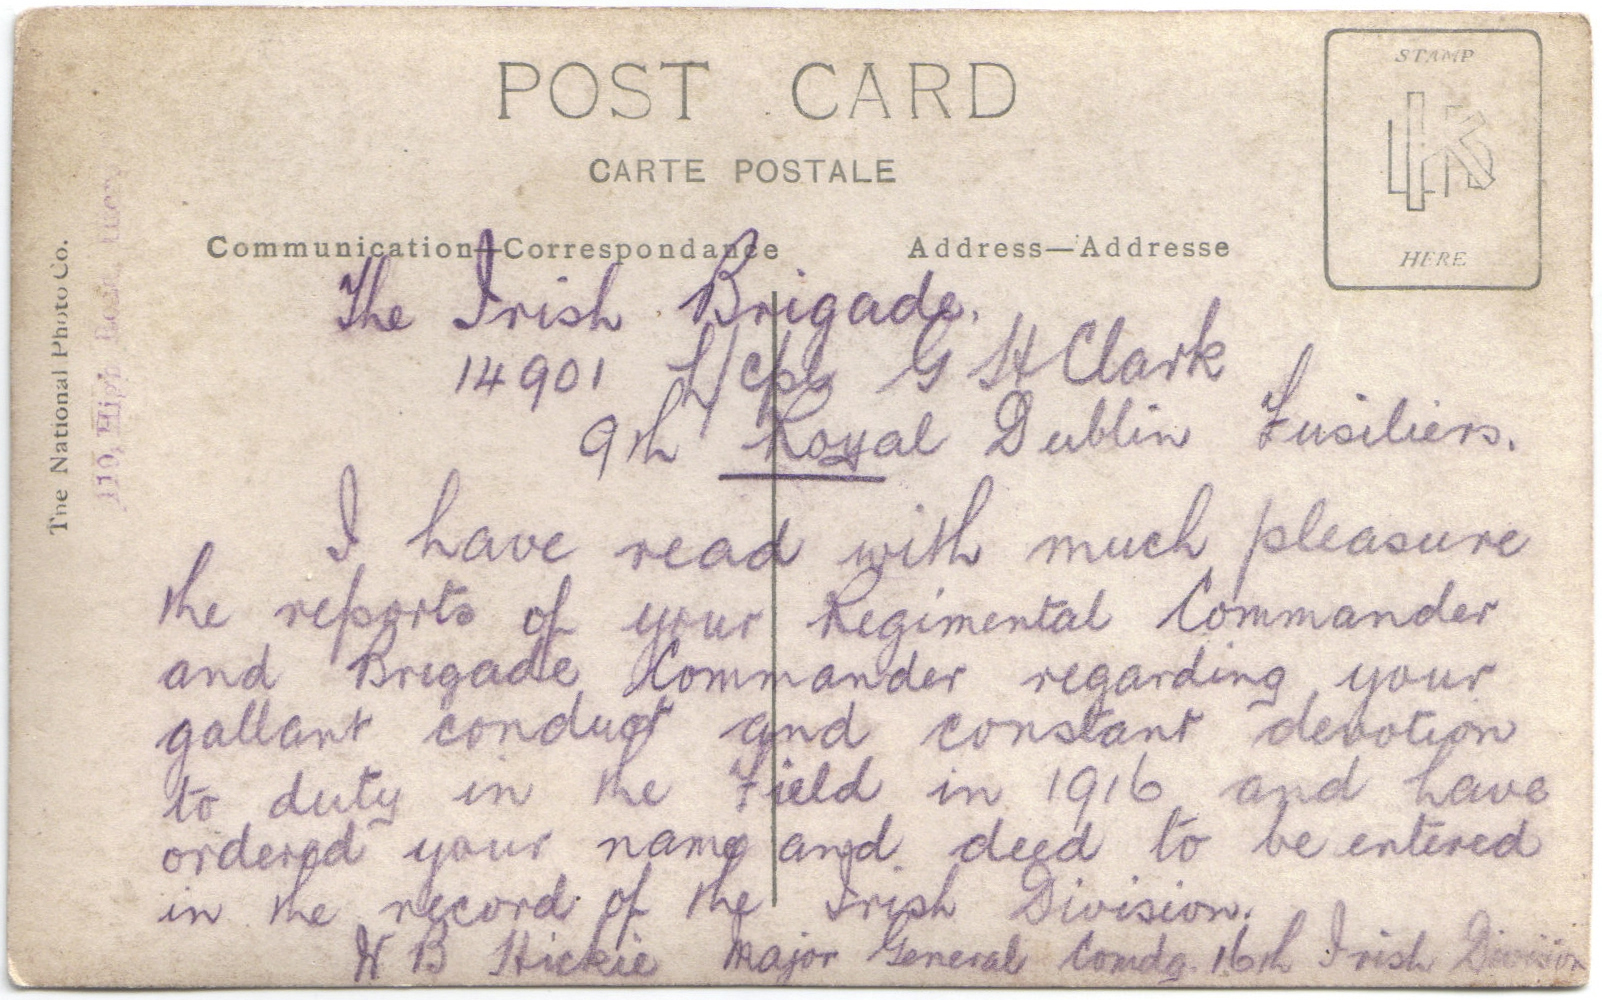 POST CARD
CARTE POSTALE
STAMP
HERE
Communication—Correspondance
Address—Addresse
The National Photo Co.
119, High
The Irish Brigade.
14901 L/cpl G H Clark
9th Royal Dublin Fusiliers.
I have read with much pleasure
the reports of your Regimental Commander
and Brigade Commander regarding your
gallant conduct and constant devotion
to duty in the Field in 1916 and have
ordered your name and deed to be entered
in the record of the Irish Division.
W B Hickie Major General Comdg. 16th Irish Division